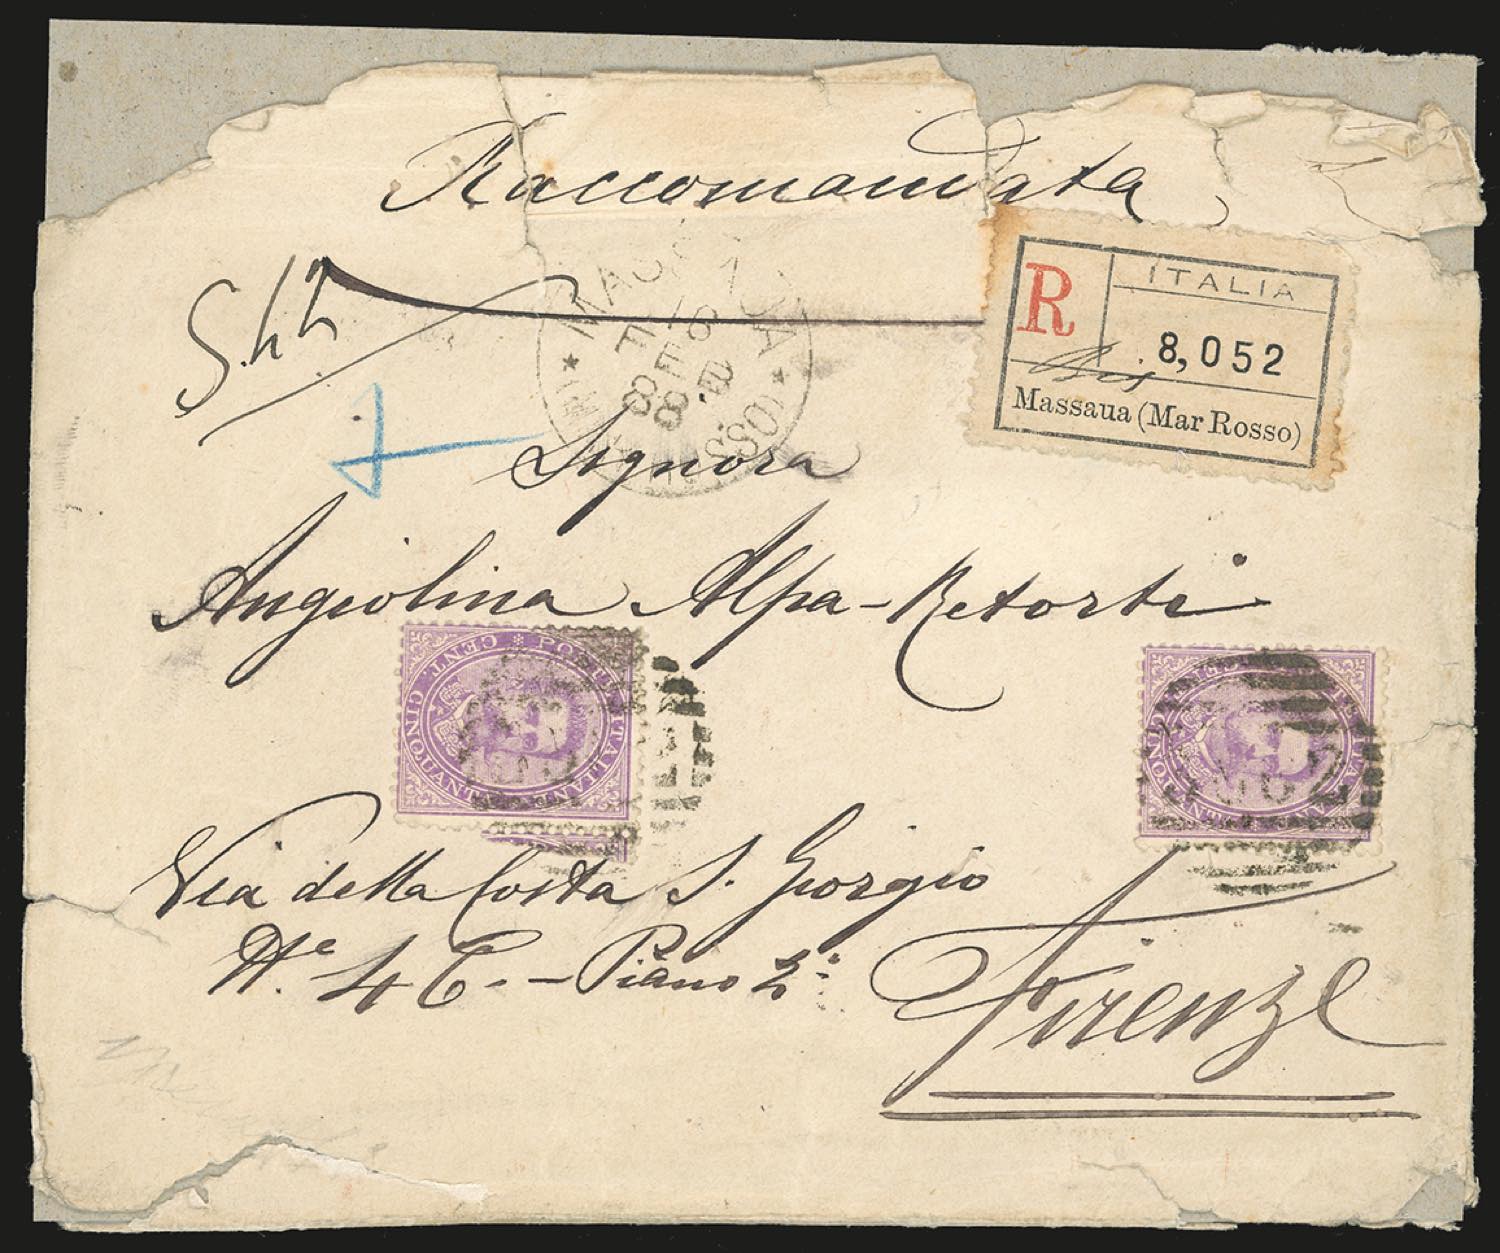 Raccomandata
MASSAUA
ITALIA
R
8,052
Massaua (Mar Rosso)
Signora
Angiolina Alpa-Retorti
POSTE ITALIANE CENT. CINQUANTA
Via della Costa S. Giorgio
No. 4 C. - Piano 2o:
Firenze